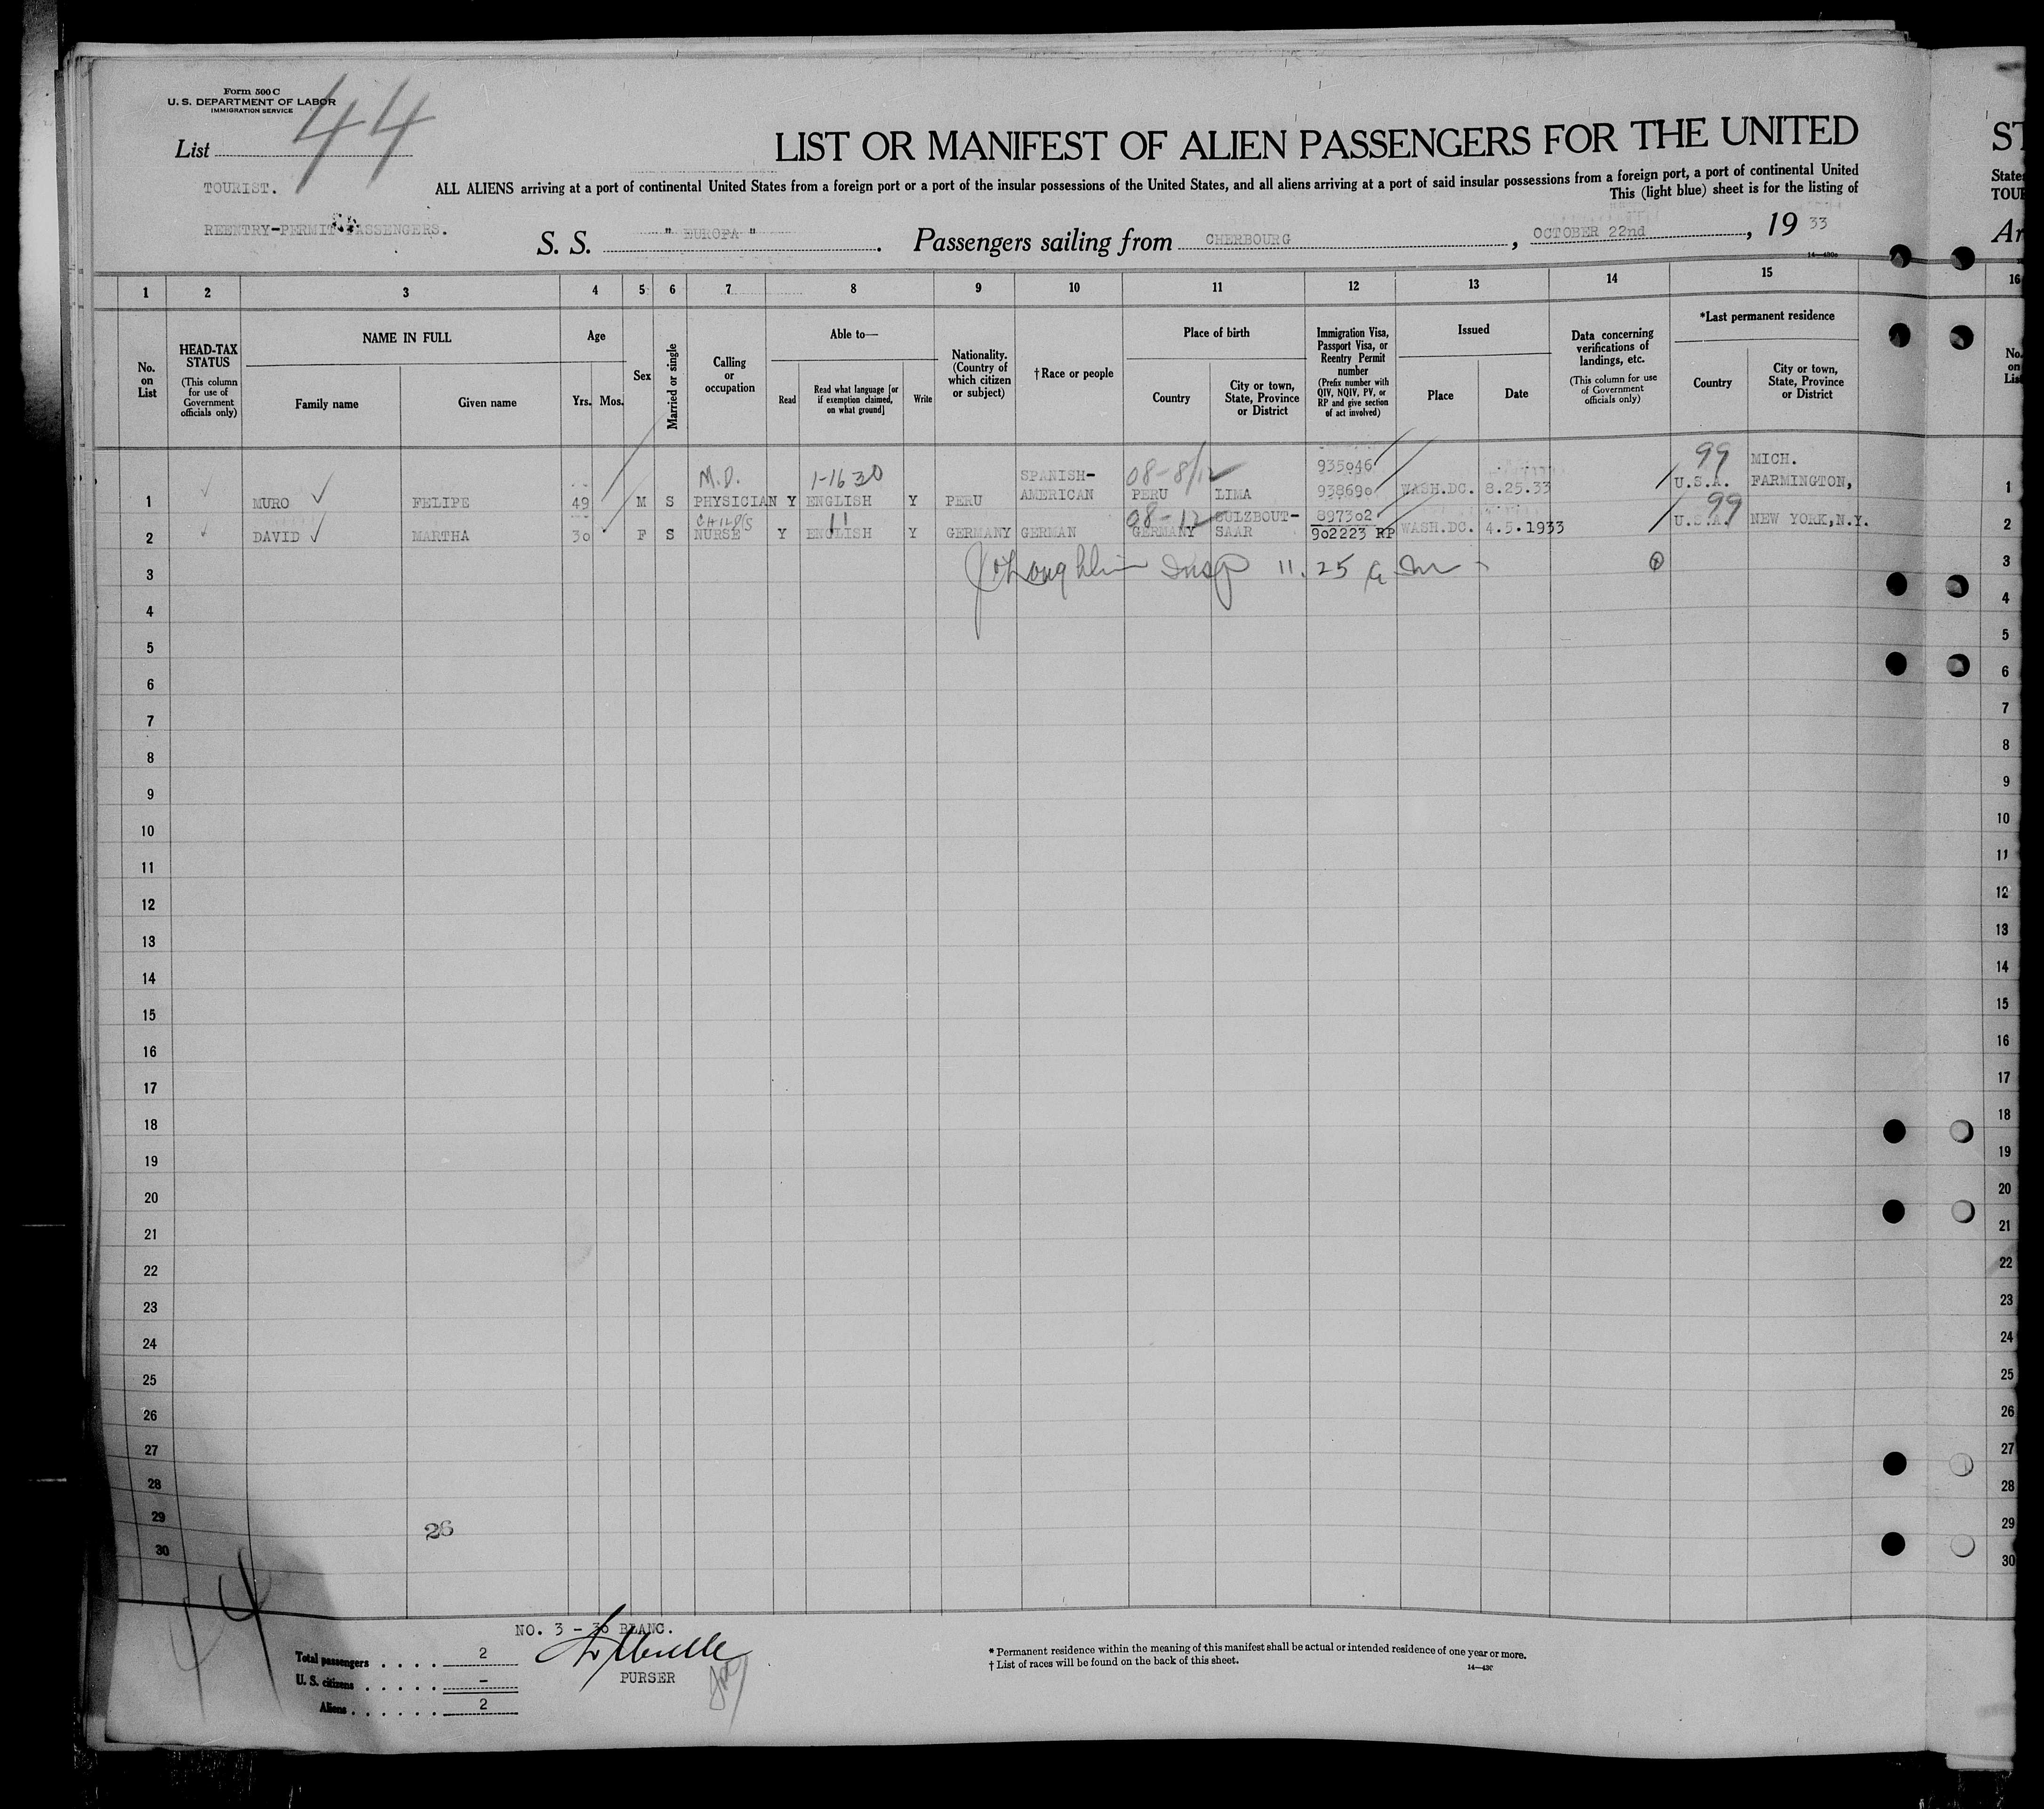 Form 500 C
U. S. DEPARTMENT OF LABOR
IMMIGRATION SERVICE
List 44
LIST OR MANIFEST OF ALIEN PASSENGERS FOR THE UNITED
TOURIST.
ALL ALIENS arriving at a port of continental United States from a foreign port or a port of the insular possessions of the United States, and all aliens arriving at a port of said insular possessions from a foreign port, a port of continental United
This (light blue) sheet is for the listing of
REENTRY-PERMIT PASSENGERS.
S. S. " EUROPA ". Passengers sailing from CHERBOURG, OCTOBER 22nd, 19 33
14—430c
1 2 3 4 5 6 7 8 9 10 11 12 13 14 15
No. on List
HEAD-TAX STATUS
(This column for use of Government officials only)
NAME IN FULL
Family name Given name
Age
Yrs. Mos.
Sex
Married or single
Calling or occupation
Able to—
Read
Read what language [or if exemption claimed, on what ground]
Write
Nationality. (Country of which citizen or subject)
†Race or people
Place of birth
Country
City or town, State, Province or District
Immigration Visa, Passport Visa, or Reentry Permit number
(Prefix number with QIV, NQIV, PV, or RP and give section of act involved)
Issued
Place Date
Data concerning verifications of landings, etc.
(This column for use of Government officials only)
*Last permanent residence
Country
City or town, State, Province or District
M.D. 1-1630 SPANISH- 08-8/12 935046 99 MICH.
1 MURO FELIPE 49 M S PHYSICIAN Y ENGLISH Y PERU AMERICAN PERU LIMA 938690 WASH.DC. 8.25.33 U.S.A. FARMINGTON, 1
CHILD'S 11 08-12 SULZBOUT- 897302 99
2 DAVID MARTHA 30 F S NURSE Y ENGLISH Y GERMANY GERMAN GERMANY SAAR 902223 RP WASH.DC. 4.5.1933 U.S.A. NEW YORK,N.Y. 2
3 Insp 11.25 a m 3
4 4
5 5
6 6
7 7
8 8
9 9
10 10
11 11
12 12
13 13
14 14
15 15
16 16
17 17
18 18
19 19
20 20
21 21
22 22
23 23
24 24
25 25
26 26
27 27
28 28
29 26 29
30 30
44
NO. 3 - 30 BLANC.
Total passengers . . . . 2
U. S. citizens . . . . . –
Aliens . . . . . . 2
PURSER
* Permanent residence within the meaning of this manifest shall be actual or intended residence of one year or more.
† List of races will be found on the back of this sheet.
14—430
ST
States
TOUR
Ar
16
No. on List